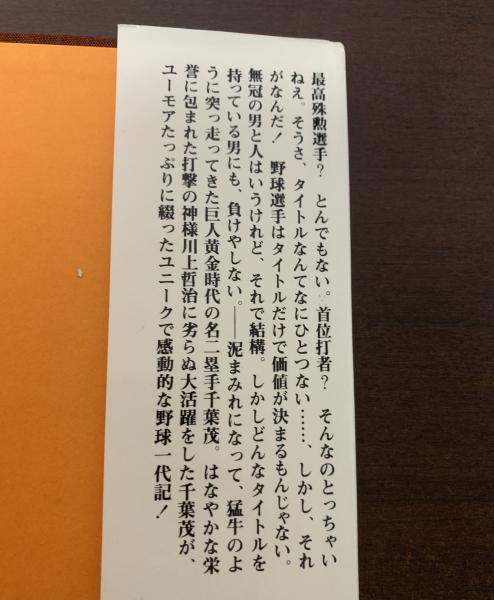 最高殊勲選手？　とんでもない。首位打者？　そんなのとっちゃい
ねえ。そうさ、タイトルなんてなにひとつない……、しかし、それ
がなんだ！　野球選手はタイトルだけで価値が決まるもんじゃない。
無冠の男と人はいうけれど、それで結構。しかしどんなタイトルを
持っている男にも、負けやしない。――泥まみれになって、猛牛のよ
うに突っ走ってきた巨人黄金時代の名二塁手千葉茂。はなやかな栄
誉に包まれた打撃の神様川上哲治に劣らぬ大活躍をした千葉茂が、
ユーモアたっぷりに綴ったユニークで感動的な野球一代記！